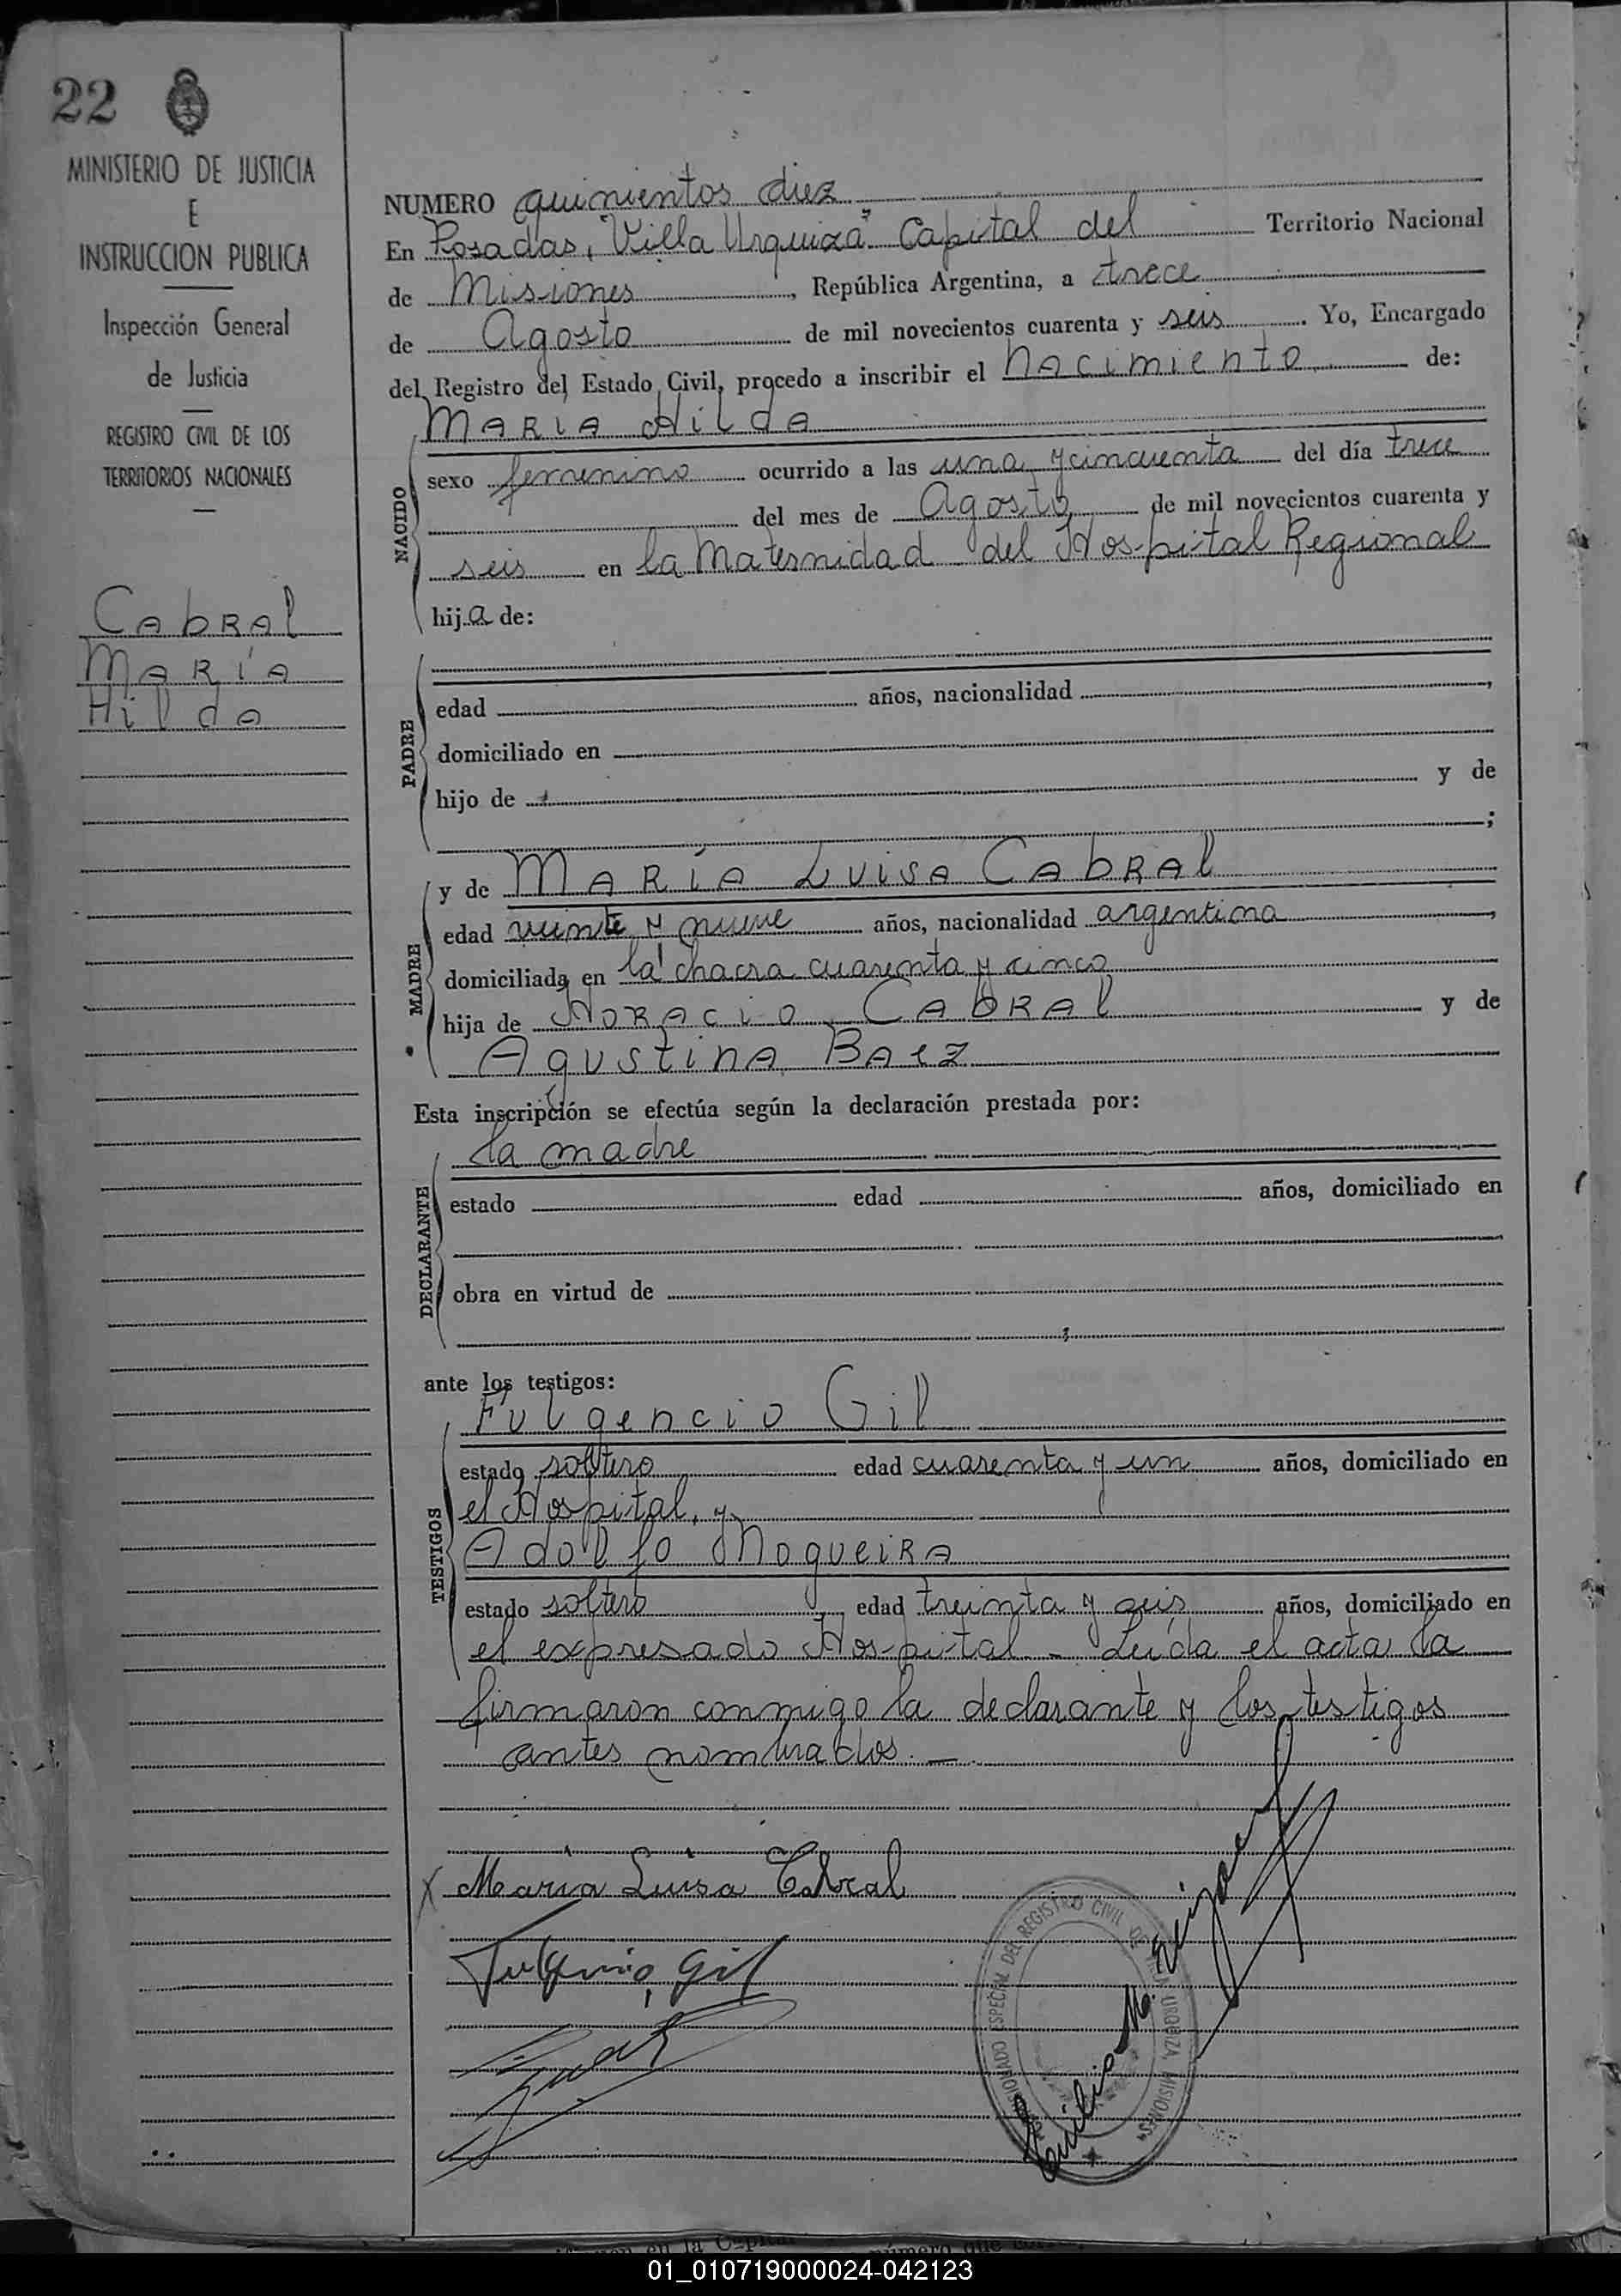 22
MINISTERIO DE JUSTICIA
E
INSTRUCCION PUBLICA
Inspección General
de Justicia
REGISTRO CIVIL DE LOS
TERRITORIOS NACIONALES
Cabral
María
Hilda
NUMERO quinientos diez
En Posadas, "Villa Urquiza" Capital del Territorio Nacional
de Misiones, República Argentina, a trece
de Agosto de mil novecientos cuarenta y seis. Yo, Encargado
del Registro del Estado Civil, procedo a inscribir el nacimiento de:
MARIA HILDA
NACIDO
sexo femenino ocurrido a las una y cincuenta del día trece
del mes de Agosto de mil novecientos cuarenta y
seis en la Maternidad del Hospital Regional
hija de:
PADRE
edad años, nacionalidad ,
domiciliado en
hijo de y de
;
MADRE
y de MARÍA LUISA CABRAL
edad veinte y nueve años, nacionalidad argentina,
domiciliada en la chacra cuarenta y cinco
hija de HORACIO CABRAL y de
AGUSTINA BAEZ
Esta inscripción se efectúa según la declaración prestada por:
DECLARANTE
la madre
estado edad años, domiciliado en
obra en virtud de
ante los testigos:
TESTIGOS
Fulgencio Gil
estado soltero edad cuarenta y un años, domiciliado en
el Hospital, y
Adolfo Nogueira
estado soltero, edad treinta y seis años, domiciliado en
el expresado Hospital. - Leída el acta la
firmaron conmigo la declarante y los testigos
antes nombrados. —
x Maria Luisa Cabral
Fulgencio Gil
ESPECIAL DEL REGISTRO CIVIL DE VILLA URQUIZA MISIONES
01_010719000024-042123